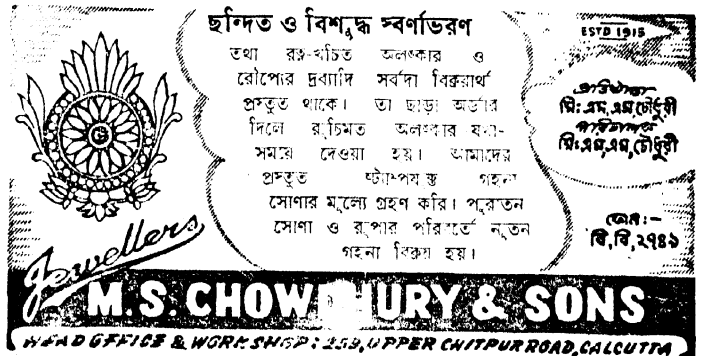 ছন্দিত ও বিশুদ্ধ স্বর্ণাভরণ
তথা রত্ন-খচিত অলঙ্কার ও
রৌপ্যের দ্রব্যাদি সর্বদা বিক্রয়ার্থ
প্রস্তুত থাকে। তা ছাড়া অর্ডার
দিলে রুচিমত অলঙ্কার যথা-
সময়ে দেওয়া হয়। আমাদের
প্রস্তুত ষ্ট্যাম্পযুক্ত গহনা
সোনার মূল্যে গ্রহণ করি। পুরাতন
সোনা ও রূপার পরিবর্তে নূতন
গহনা বিক্রয় হয়।
ESTD 1915
প্রতিষ্ঠাতা
মি: এম, এম, চৌধুরী
পরিচালক
মি: এম, এম, চৌধুরী
ফোন:-
বি, বি, ২৭৪৯
Jewellers
M.S. CHOWDHURY & SONS
HEAD OFFICE & WORKSHOP: 259, UPPER CHITPUR ROAD, CALCUTTA